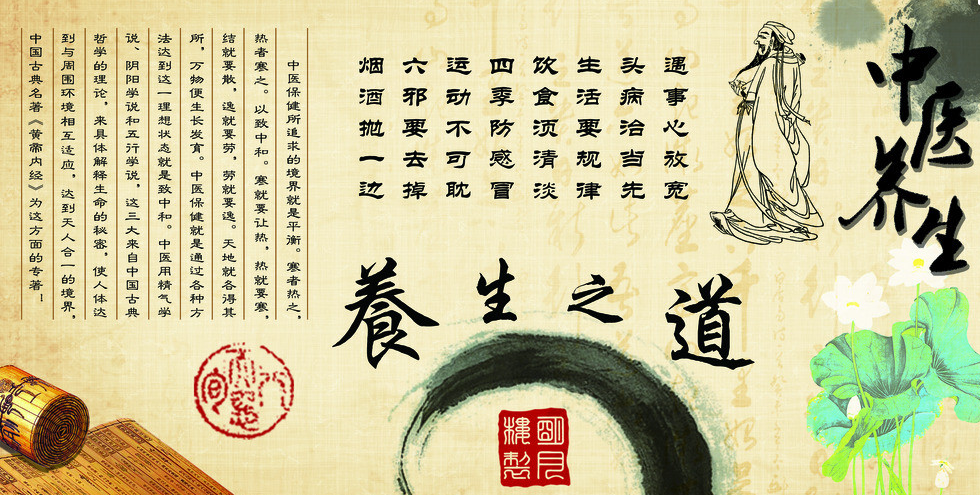 中医养生
遇事心放宽
头病治当先
生活要规律
饮食须清淡
四季防感冒
运动不可耽
六邪要去掉
烟酒抛一边
中医保健所追求的境界就是平衡。寒者热之，
热者寒之。以致中和。寒就要让热，热就要寒，
结就要散，逸就要劳，劳就要逸。天地就各得其
所，万物便生长发育。中医保健就是通过各种方
法达到这一理想状态就是致中和。中医用精气学
说、阴阳学说和五行学说，这三大来自中国古典
哲学的理论，来具体解释生命的秘密，使人体达
到与周围环境相互适应，达到天人合一的境界，
中国古典名著《黄帝内经》为这方面的专著！
養生之道
明月
楼製